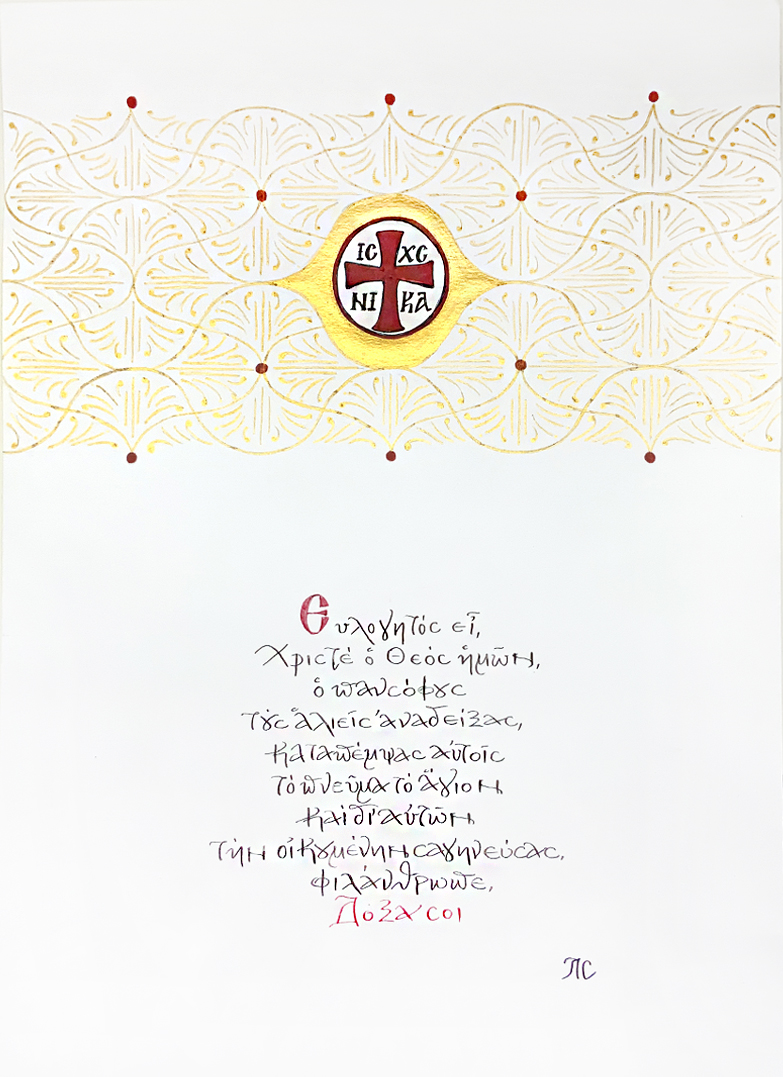 ΙC ΧC
ΝΙ ΚΑ
Ευλογητός εἶ,
Χριστὲ ὁ Θεὸς ἡμῶν,
ὁ πανσόφους
τοὺς ἁλιεῖς ἀναδείξας,
καταπέμψας αὐτοῖς
τὸ πνεῦμα τὸ ἅγιον,
καὶ δι' αὐτῶν
τὴν οἰκουμένην σαγηνεύσας,
φιλάνθρωπε,
Δόξα σοι
ΠC